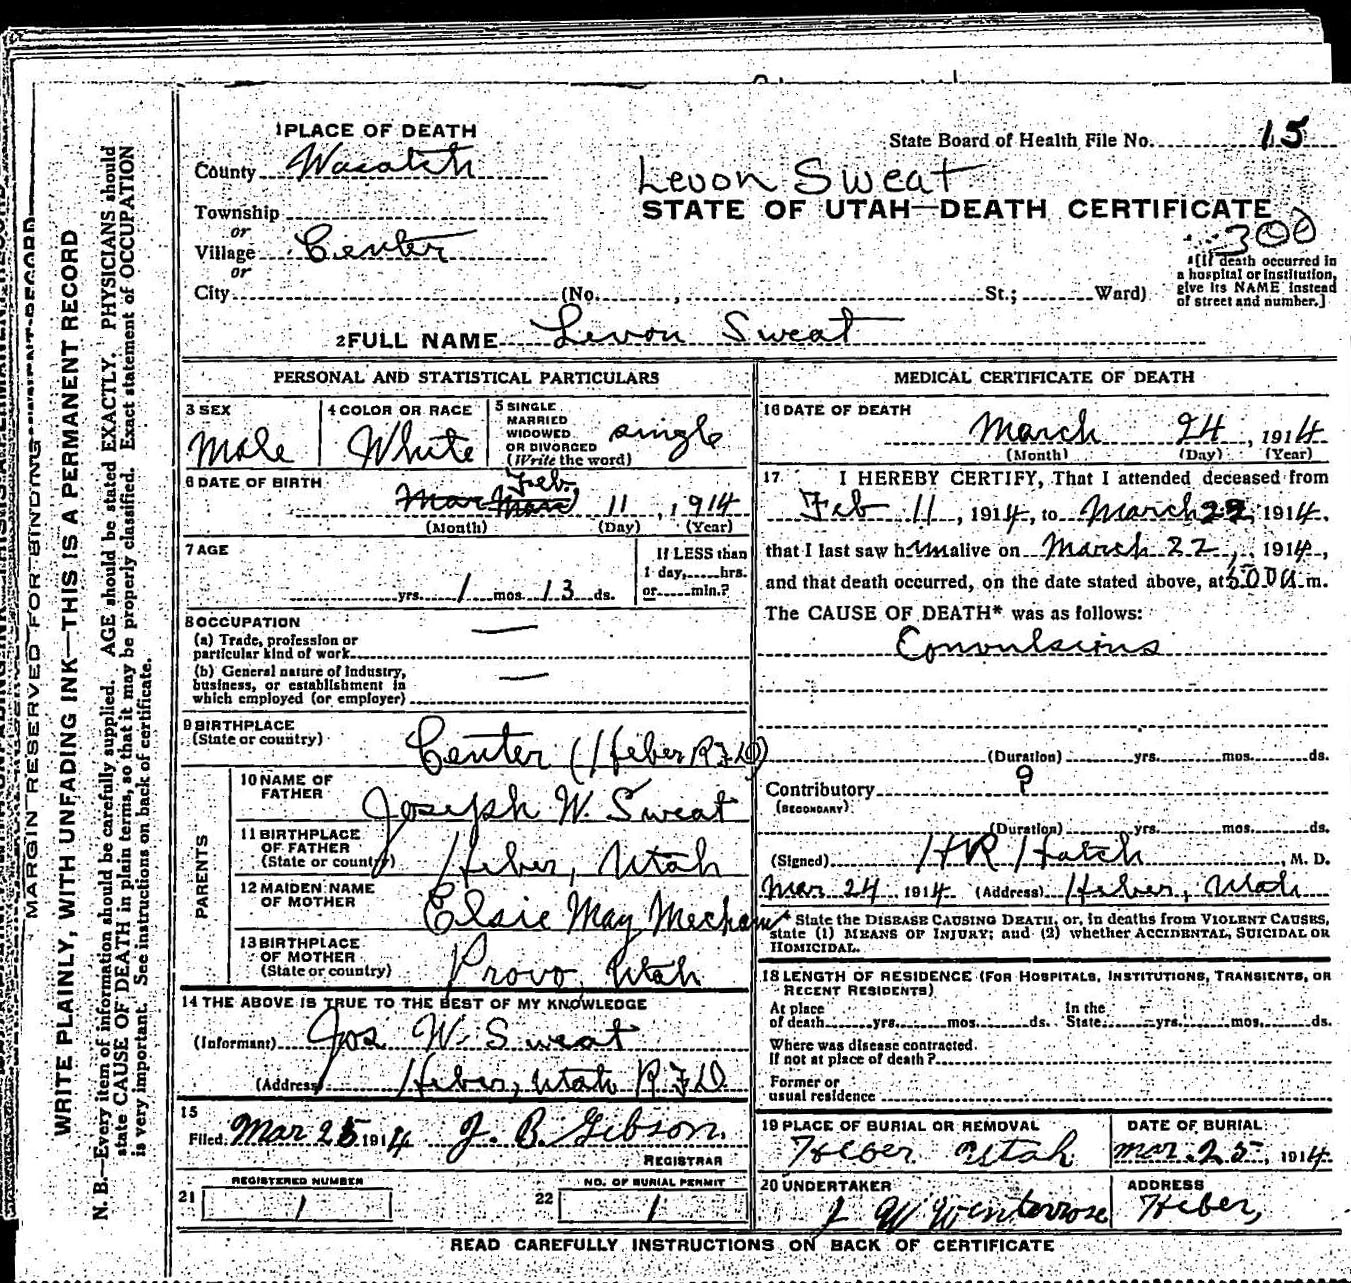 1 PLACE OF DEATH
County Wasatch
State Board of Health File No. 15
Levon Sweat
Township
STATE OF UTAH—DEATH CERTIFICATE
300
or
Village Center
or
City (No. , St.; Ward)
*[If death occurred in
a hospital or institution,
give its NAME instead
of street and number.]
2 FULL NAME Levon Sweat
PERSONAL AND STATISTICAL PARTICULARS
3 SEX
Male
4 COLOR OR RACE
White
5 SINGLE
MARRIED
WIDOWED
OR DIVORCED
(Write the word)
single
6 DATE OF BIRTH
Feb.
Mar 11, 1914
(Month) (Day) (Year)
7 AGE
yrs. 1 mos. 13 ds.
If LESS than
1 day, hrs.
or min.?
8 OCCUPATION
(a) Trade, profession or
particular kind of work —
(b) General nature of industry,
business, or establishment in
which employed (or employer) —
9 BIRTHPLACE
(State or country)
Center (Heber RFD)
PARENTS
10 NAME OF
FATHER
Joseph W. Sweat
11 BIRTHPLACE
OF FATHER
(State or country)
Heber, Utah
12 MAIDEN NAME
OF MOTHER
Elsie May Mecham
13 BIRTHPLACE
OF MOTHER
(State or country)
Provo, Utah
14 THE ABOVE IS TRUE TO THE BEST OF MY KNOWLEDGE
(Informant) Jos W. Sweat
(Address) Heber, Utah RFD.
15
Filed Mar 25 1914 J. B. Gibson.
REGISTRAR
21 REGISTERED NUMBER
1
22 NO. OF BURIAL PERMIT
1
MEDICAL CERTIFICATE OF DEATH
16 DATE OF DEATH
March 24, 1914
(Month) (Day) (Year)
17 I HEREBY CERTIFY, That I attended deceased from
Feb 11, 1914, to March 22, 1914,
that I last saw him alive on March 22, 1914,
and that death occurred, on the date stated above, at m.
The CAUSE OF DEATH* was as follows:
Convulsions
(Duration) yrs. mos. ds.
Contributory ?
(SECONDARY)
(Duration) yrs. mos. ds.
(Signed) HR Hatch, M. D.
Mar 24 1914 (Address) Heber, Utah
* State the DISEASE CAUSING DEATH, or, in deaths from VIOLENT CAUSES,
state (1) MEANS OF INJURY; and (2) whether ACCIDENTAL, SUICIDAL OR
HOMICIDAL.
18 LENGTH OF RESIDENCE (FOR HOSPITALS, INSTITUTIONS, TRANSIENTS, OR
RECENT RESIDENTS)
At place In the
of death yrs. mos. ds. State yrs. mos. ds.
Where was disease contracted.
If not at place of death?
Former or
usual residence
19 PLACE OF BURIAL OR REMOVAL
Heber Utah
DATE OF BURIAL
Mar. 25, 1914
20 UNDERTAKER
J W Winterrose
ADDRESS
Heber,
READ CAREFULLY INSTRUCTIONS ON BACK OF CERTIFICATE
MARGIN RESERVED FOR BINDING
WRITE PLAINLY, WITH UNFADING INK—THIS IS A PERMANENT RECORD
N. B.—Every item of information should be carefully supplied. AGE should be stated EXACTLY. PHYSICIANS should
state CAUSE OF DEATH in plain terms, so that it may be properly classified. Exact statement of OCCUPATION
is very important. See instructions on back of certificate.